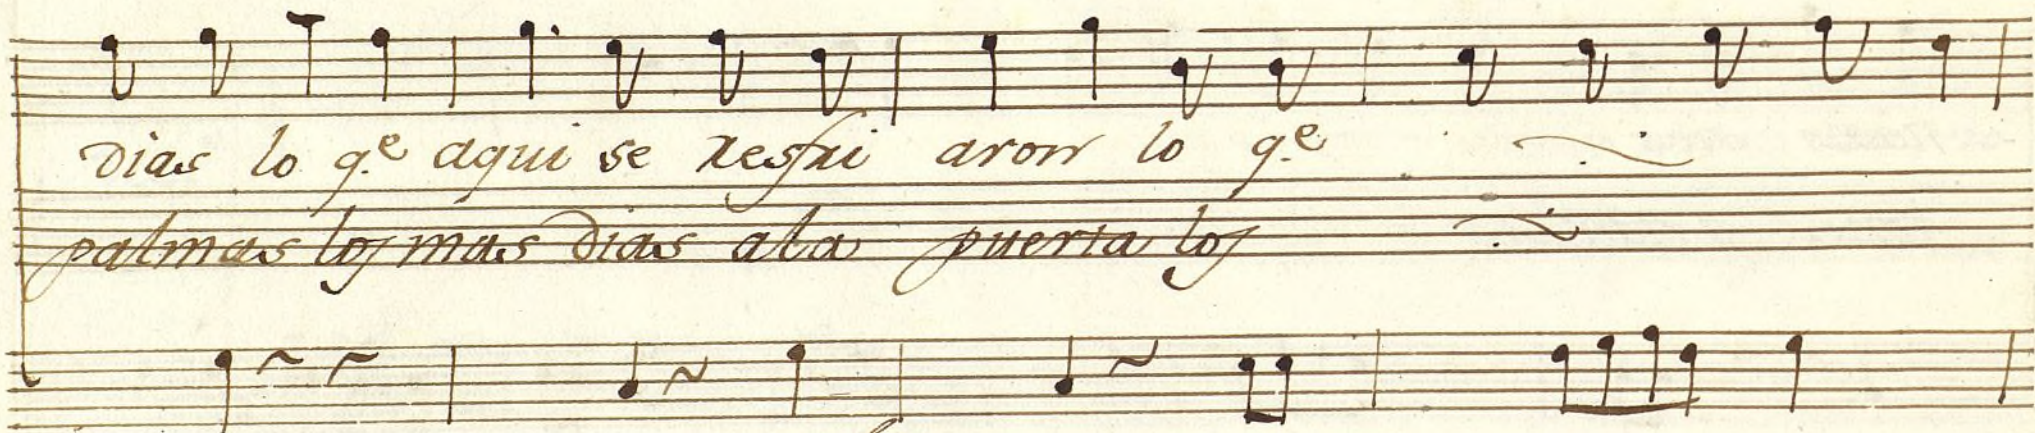 dias lo q.e aqui se resfri aron lo q.e
palmas los mas dias ala puerta los